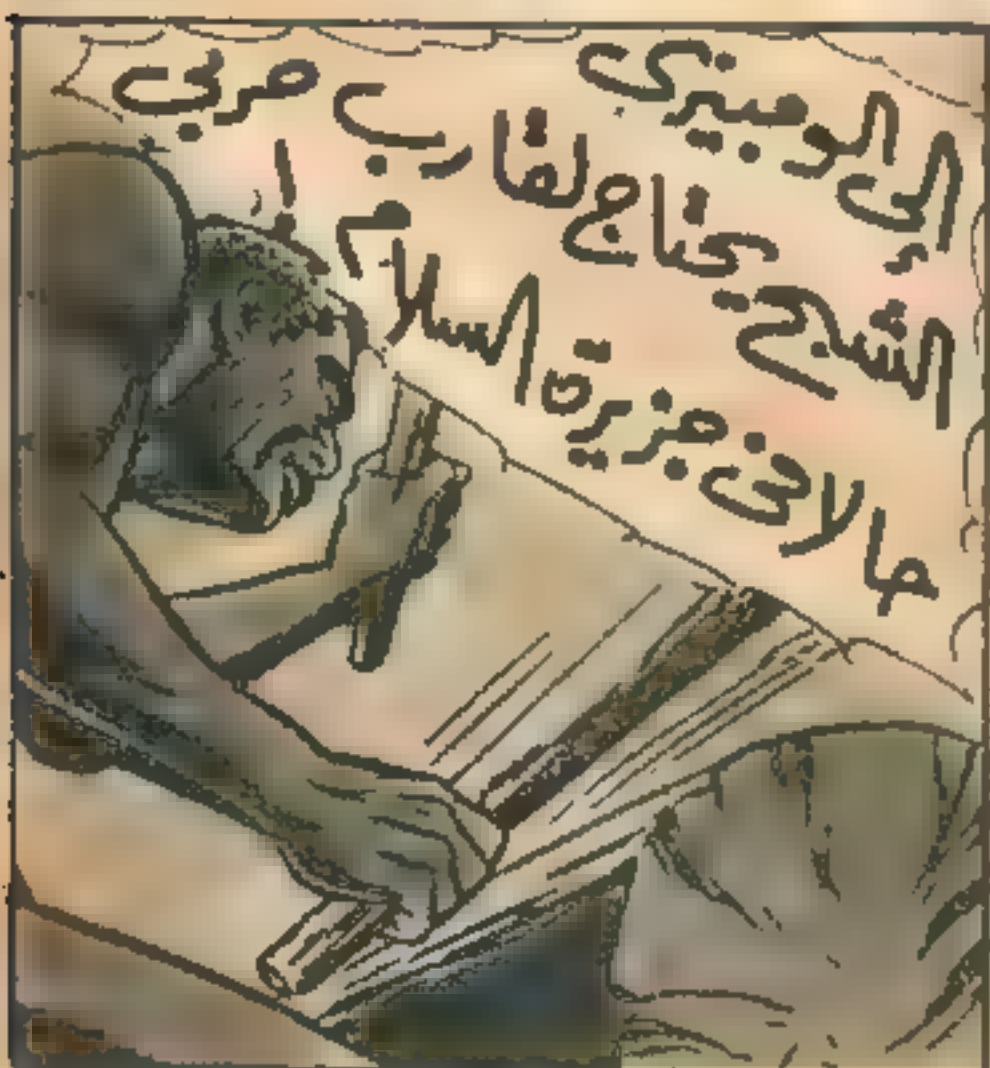 إلى الومبيزى
الشبح يحتاج لقارب حربى
حالا فى جزيرة السلام !